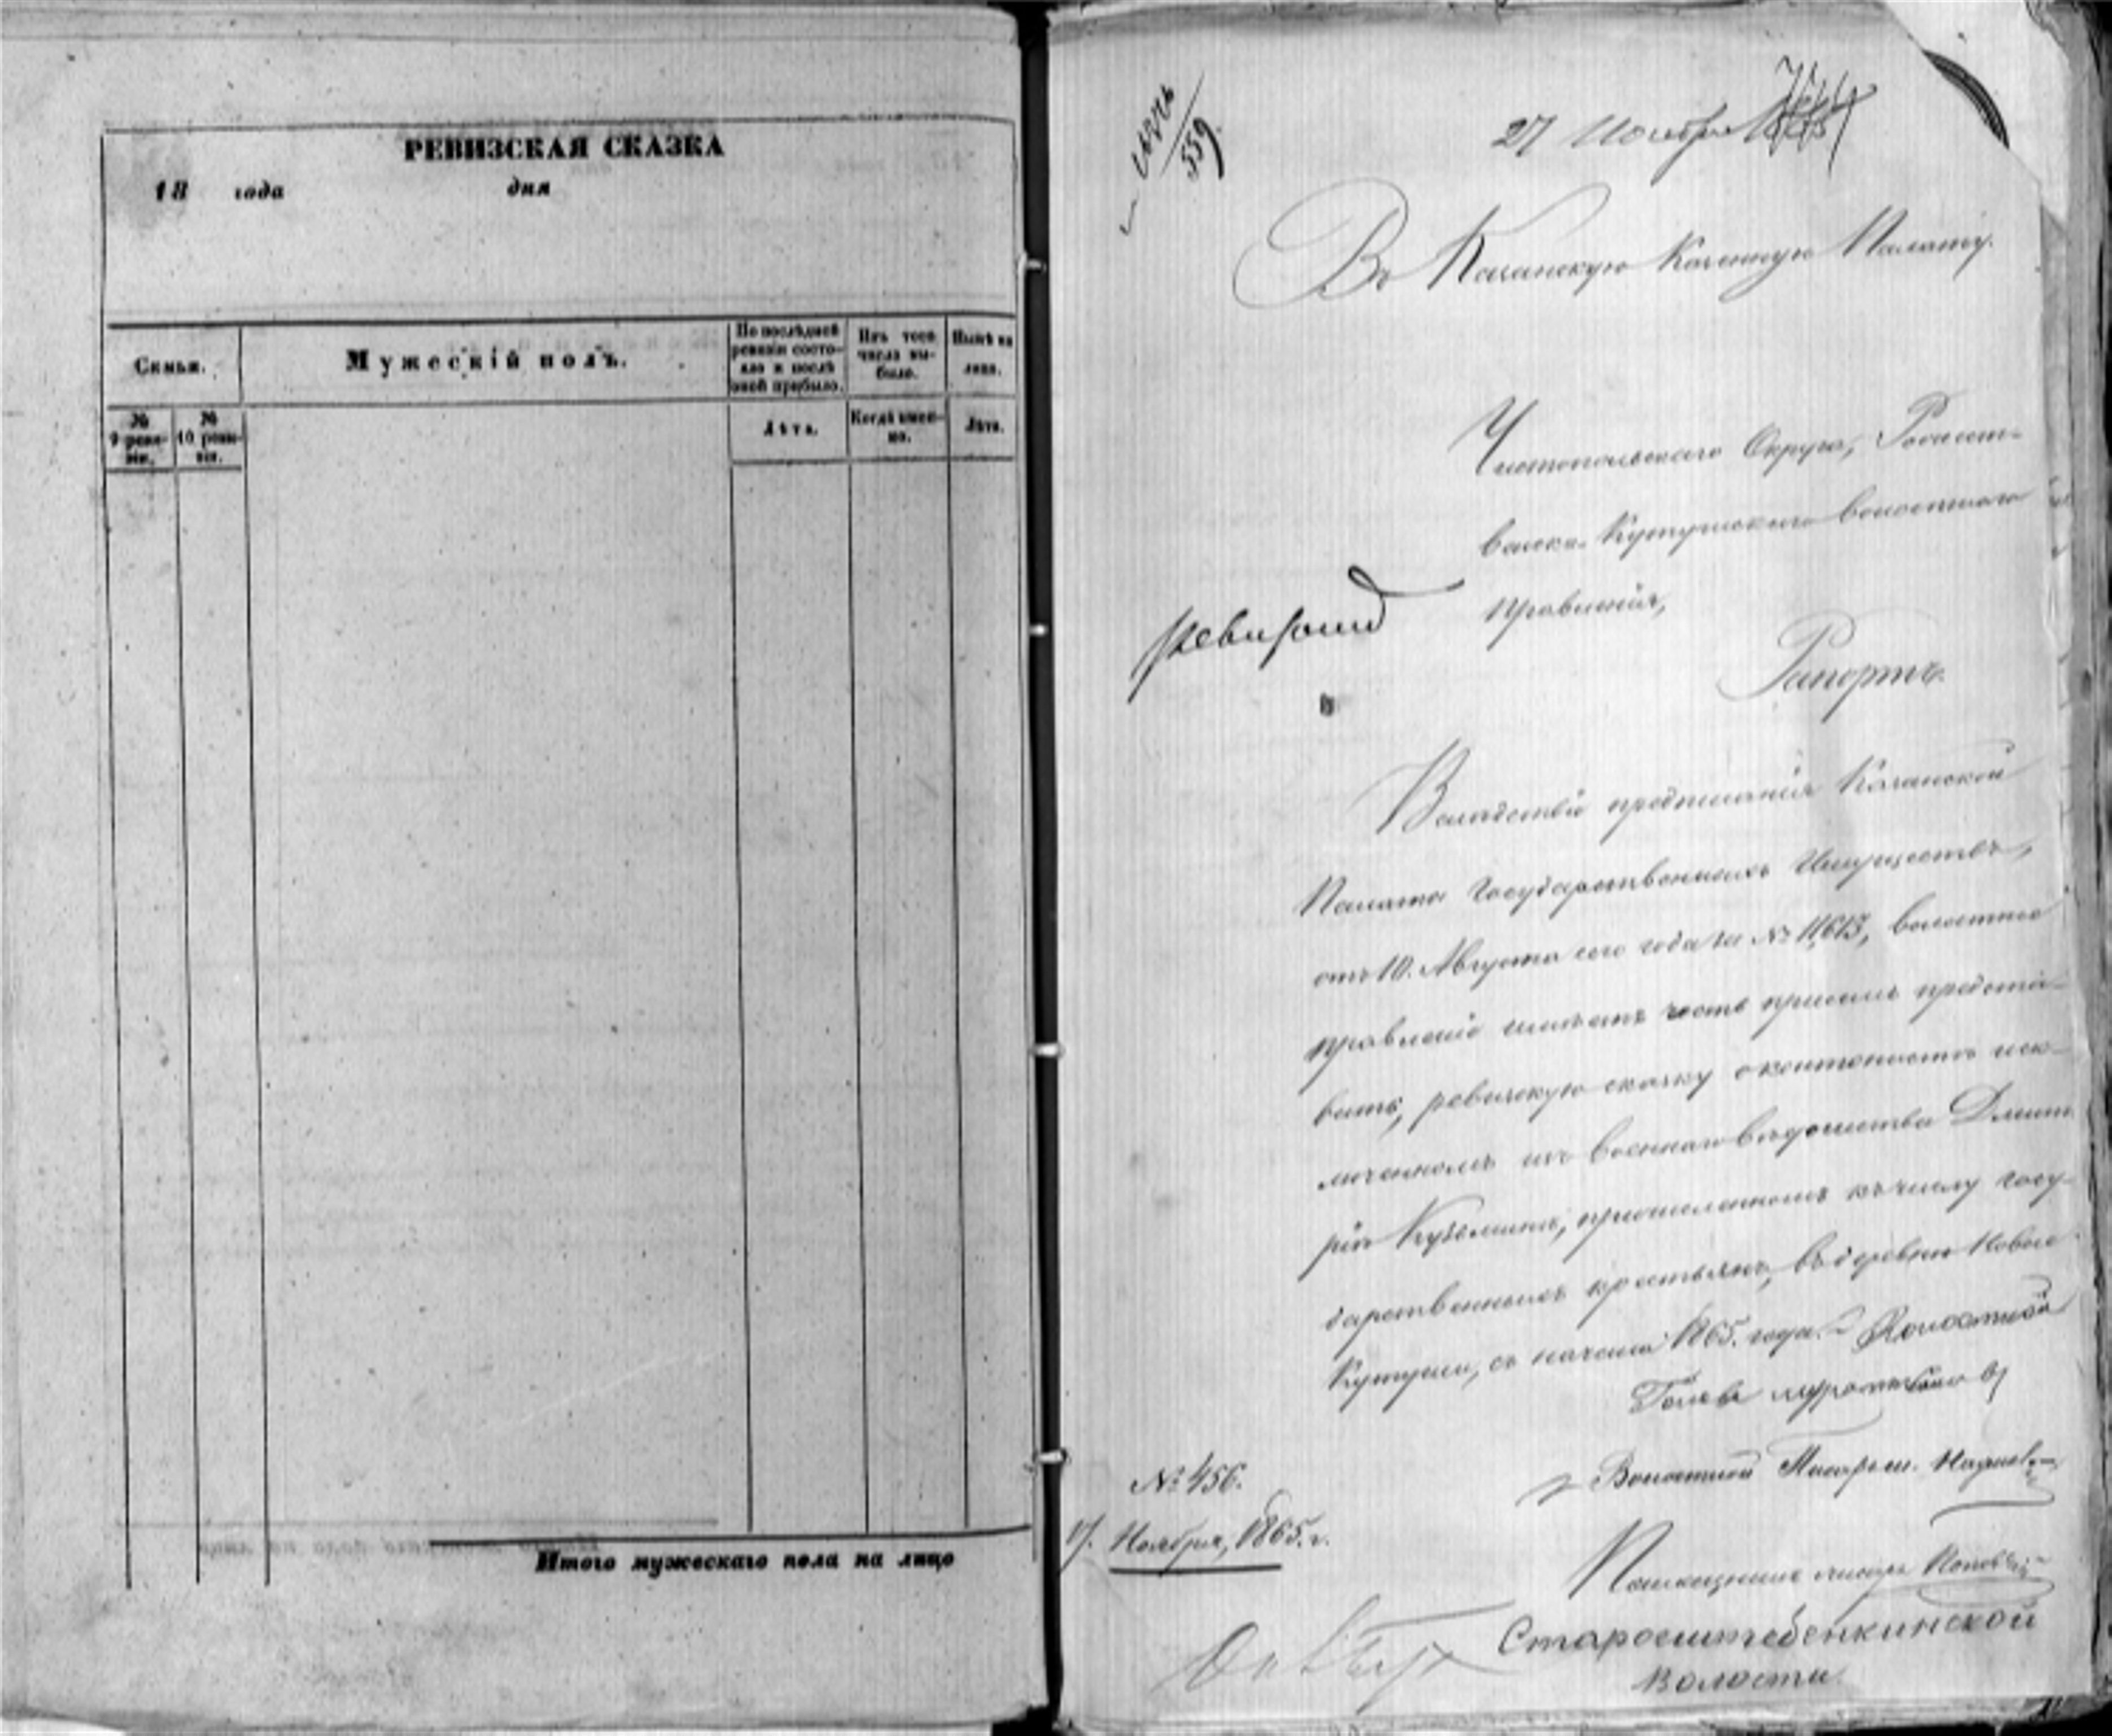 РЕВИЗСКАЯ СКАЗКА
18 года дня
Семьи.
Мужескій полъ.
По послѣдней ревизіи состояло и послѣ оной прибыло.
Изъ того числа выбыло.
Нынѣ на лицо.
№ 9 ревизіи.
№ 10 ревизіи.
Лѣта.
Когда именно.
Лѣта.
Итого мужескаго пола на лицо
559
27 Ноября
Въ Казанскую Казенную Палату.
Чистопольскаго Округа,
Кутушскаго волостнаго
правленія,
Рапортъ.
Вслѣдствіе предписанія Казанской
Палаты Государственныхъ Имуществъ,
отъ 10. Августа сего года за № 11,613, волостное
правленіе имѣетъ честь при семъ предста-
вить, ревизскую сказку о кантонистѣ иск-
люченномъ изъ военнаго вѣдомства Дмит-
ріѣ Кузьминѣ, причисленномъ къ числу госу-
дарственныхъ крестьянъ, въ деревню Новые
Кутуши, съ начала 1865. года. Волостной
Голова
Волостной Писарь
№ 456.
17. Ноября, 1865. г.
Помощникъ писаря Поповъ
Староиштебенкинской
Волости.